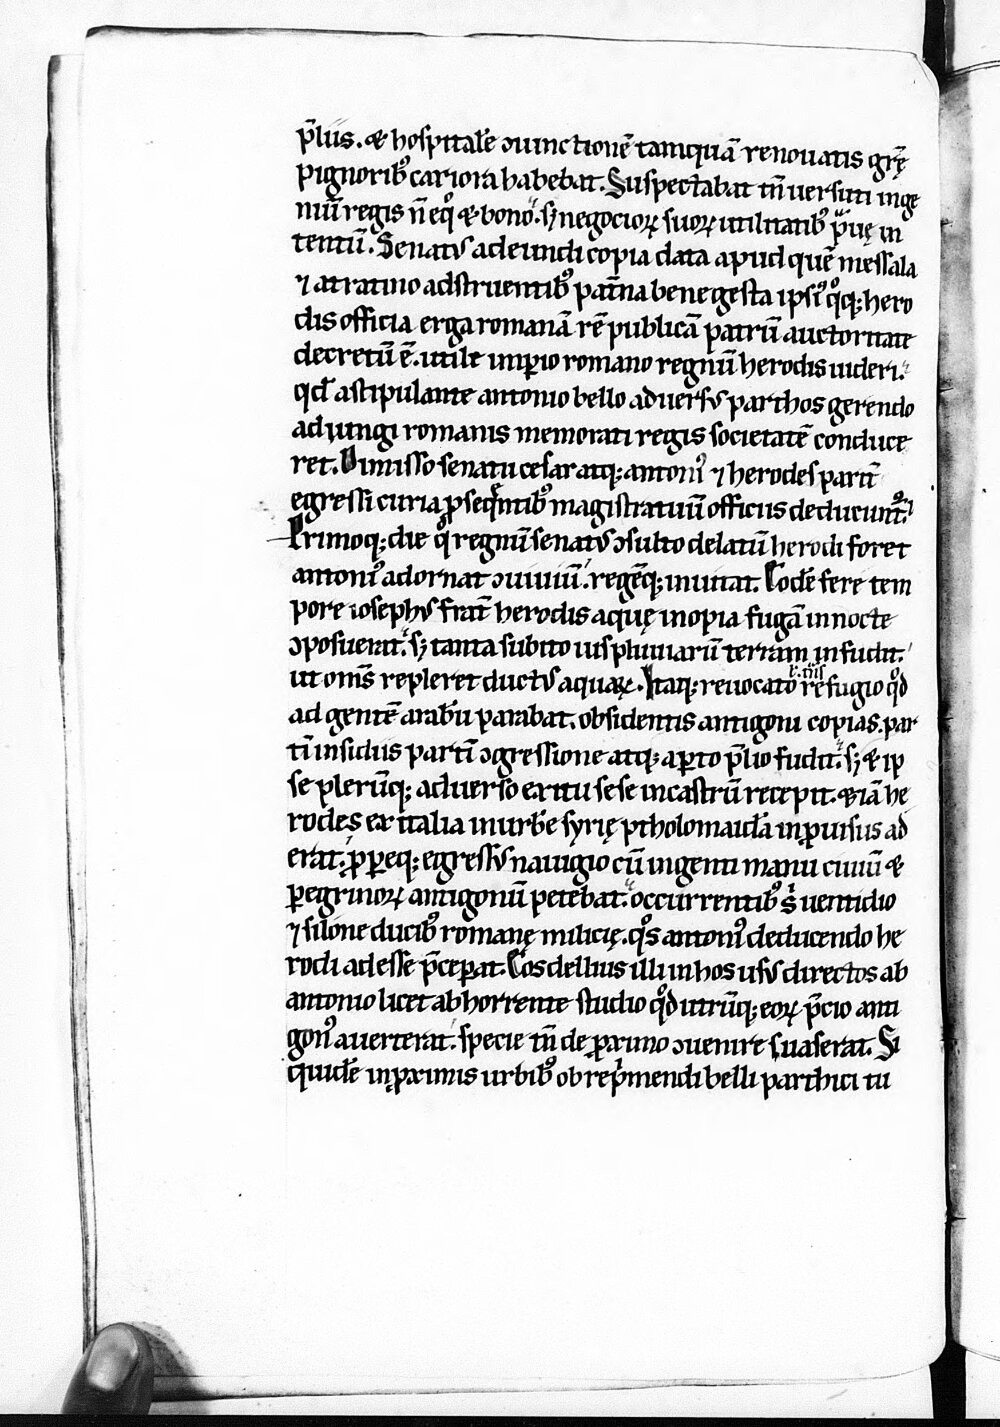 p̄liis. & hospitalē ɔiunctionē tamquā renouatis grę̄
pignorib⁹ cariora habebat. Suspectabat tn̄ uersuti inge
niū regis n̄ eqͦ & bono. sꝫ negocioꝝ suoꝝ utilitatib⁹ p̄uę in
tentū. Senat⁹ adeundi copia data apud quē messala
⁊ atratino adstruentib⁹ pat̄na benegesta ipsi⁹ qͦqꝫ hero
dis officia erga romanā rē publicā patrū auctoritate
decretū ē. utile imꝑio romano regnū herodis uideri.
qđ astipulante antonio bello aduersus parthos gerendo
adjungi romanis memorati regis societatē conduce
ret. Dimisso senatu cesar atqꝫ antoni⁹ ⁊ herodes parit̄
egressi curia ꝓseqͣntib⁹ magistratuū officiis deducunt᷑.
Primoqꝫ die qͦ regnū senatus ɔsulto delatū herodi foret
antoni⁹ adornat ɔuiuiū. regēqꝫ inuitat. Eodē fere tem
pore iosephus frat̄ herodis aquę inopia fugā in nocte
ɔposuerat. sꝫ tanta subito uis pluuiarū terram infudit.
ut om̄s repleret ductus aquaꝝ. Itaqꝫ reuocato refugio qͦd
ad gentē arabū parabat. obsidentis antigoni copias. par
tī insidiis partī ɔgressione atqꝫ aꝑto p̄lio fudit. sꝫ & ip
se plerūqꝫ aduerso exitu sese in castrū recepit. & iā he
rodes ex italia in urbē syrię ptholomaidā inꝓuisus ad
erat. ꝓꝑeqꝫ egressus nauigio cū ingenti manu ciuiū &
ꝑegrinoꝝ antigonū petebat. occurrentib⁹ s uentidio
⁊ silone ducib⁹ romanę milicię. qͦs antoni⁹ deducendo he
rodi adesse p̄ceꝑat. Eos dellius illi in hos usus directos ab
antonio licet abhorrente studio qͦd utrūqꝫ eoꝝ p̄cio anti
gon⁹ auerterat. specie tn̄ de ꝓximo ɔuenire suaserat. Si
quidē inꝓximis urbib⁹ ob rep̄mendi belli parthici tu